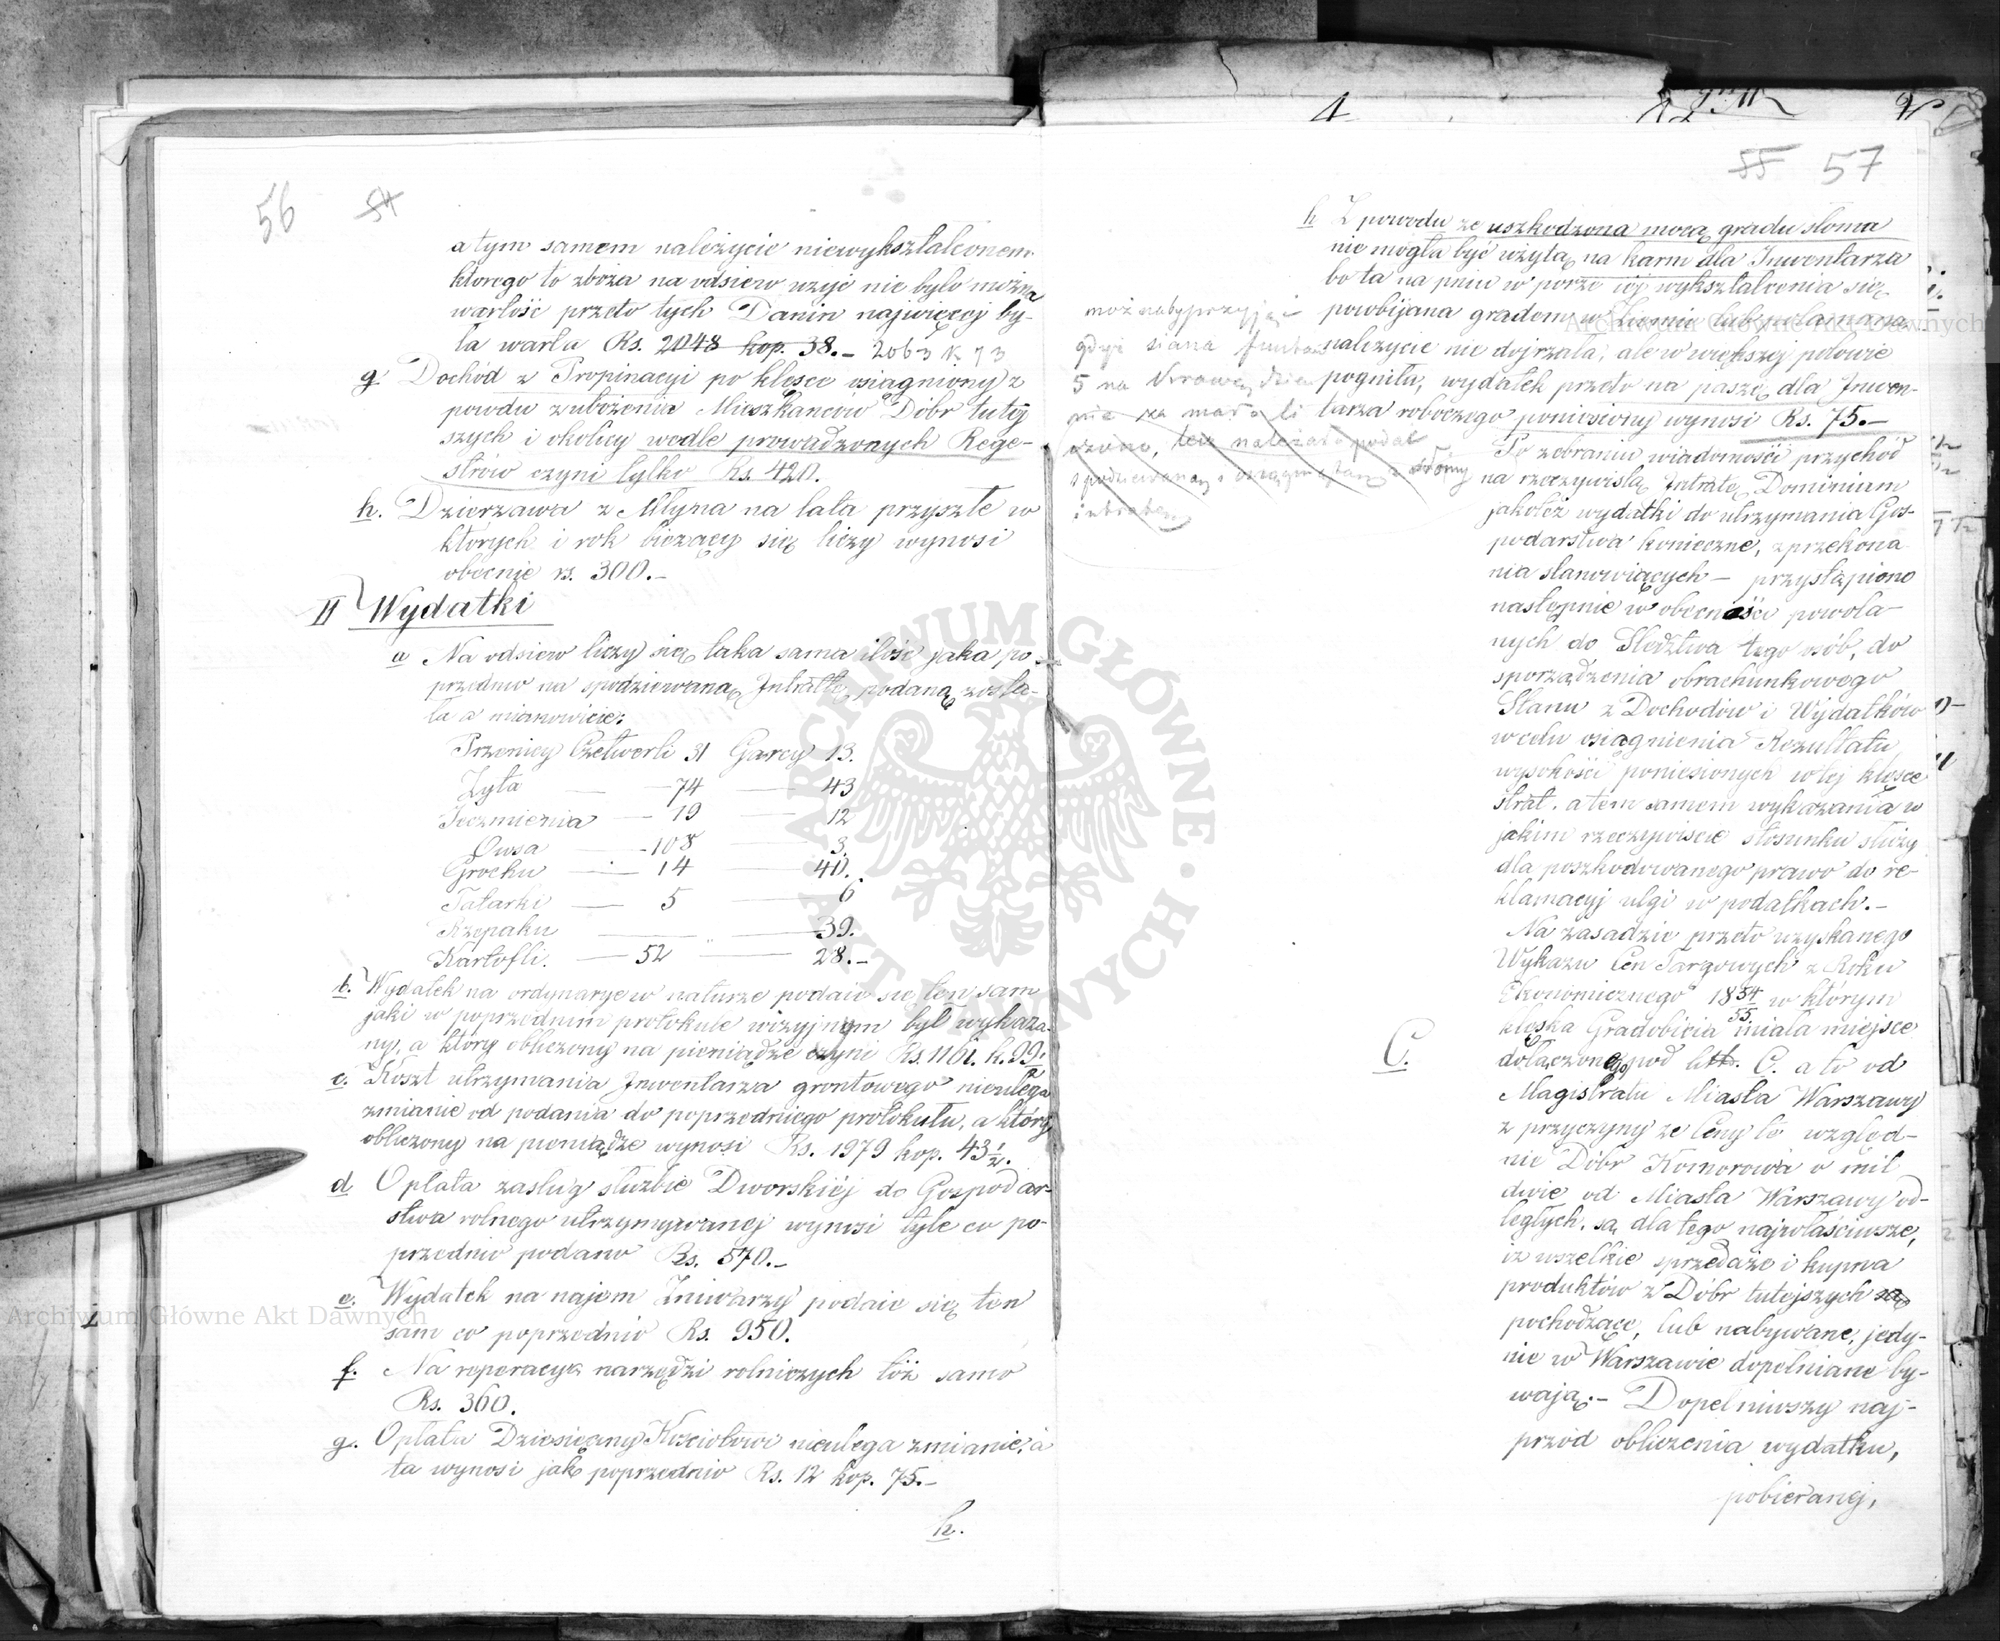 56 54
a tym samem należycie niewykształconem
którego to zboża na odsiew użyć nie było można
wartość przeto tych Danin najwięcej by-
ła warta Rs. 2048 kop. 38.- 2063 k 73
g. Dochód z Propinacyi po klęsce osiągniony z
powodu zubożenia Mieszkańców Dóbr tutej
szych i okolicy wedle prowadzonych Rege-
strów czyni tylko Rs. 420.
h. Dzierżawa z Młyna na lata przyszłe w
których i rok bieżący się liczy wynosi
obecnie rs. 300.-
II Wydatki
a Na odsiew liczy się taka sama ilość jaka po-
przednio na spodziewaną Intratę, podaną zosta-
ła a mianowicie:
Pszenicy Czetwerti 31 Garcy 13.
Żyta — 74 — 43
Jęczmienia — 19 — 12
Owsa — 108 — 3.
Grochu — 14 — 40.
Tatarki — 5 — 6
Rzepaku — 39.
Kartofli. — 52 — 28.-
b. Wydatek na ordynarye w naturze podaie się ten sam
jaki w poprzednim protokule wizyjnym był wykaza-
ny, a który obliczony na pieniądze czyni Rs. 1161. k. 99½
c. Koszt utrzymania Inwentarza gruntowego nieulega
zmianie od podania do poprzedniego protokułu, a który
obliczony na pieniądze wynosi Rs. 1979 kop. 43½.
d Opłata zasług służbie Dworskiéj do Gospodar-
stwa rolnego utrzymywanej wynosi tyle co po-
przednio podano Rs. 570.-
e. Wydatek na najem Żniwiarzy podaie się ten
sam co poprzednio Rs. 950.
f. Na reperacyą narzędzi rolniczych tóż samo
Rs. 360.
g. Opłata Dziesięciny Kościołowi nieulega zmianie, a
ta wynosi jak poprzednio Rs. 12 kop. 75.-
h.
55 57
h Z powodu że uszkodzona mocą gradu słoma
nie mogła być użytą na karm dla Inwentarza
bo ta na pniu w porze iéj wykształcenia się
powobijana gradem w ziemię lub połamana
należycie nie dojrzała; ale w większéj połowie
pogniła, wydatek przeto na paszę dla Inwen-
tarza roboczego poniesiony wynosi Rs. 75.-
możnaby przyjąć
gdyż siana funtów
5 na krowę dzien
nie za mało li
czono, lecz należało podać
spodziewaną i osiągniętą z słomy
intratę
Po zebraniu wiadomości przychód
na rzeczywistą Intratę Dominium
jakotéż wydatki do utrzymania Gos-
podarstwa konieczne, z przekona
nia stanowiących — przystąpiono
następnie w obecności powoła-
nych do Śledztwa tego osób, do
sporządzenia obrachunkowego
Stanu z Dochodów i Wydatków
w celu osiągnienia Rezultatu
wysokości poniesionych w téj klęsce
strat. a tem samem wykazania w
jakim rzeczywiście stosunku służy
dla poszkodowanego prawo do re-
klamacyj ulgi w podatkach.-
Na zasadzie przeto uzyskanego
Wykazu Cen Targowych z Roku
Ekonomicznego 1854/55 w którym
klęska Gradobicia miała miejsce
C. dołączonego pod litt. C. a to od
Magistratu Miasta Warszawy
z przyczyny że Ceny te względ-
nie Dóbr Komorowa o mil
dwie od Miasta Warszawy od-
ległych, są dla tego najwłaściwsze,
iż wszelkie sprzedaże i kupna
produktów z Dóbr tutejszych są
pochodzące, lub nabywane, jedy-
nie w Warszawie dopełniane by-
wają.- Dopełniwszy naj-
przód obliczenia wydatku,
pobieranej,
Archiwum Główne Akt Dawnych
Archiwum Główne Akt Dawnych
ARCHIWUM GŁÓWNE AKT DAWNYCH